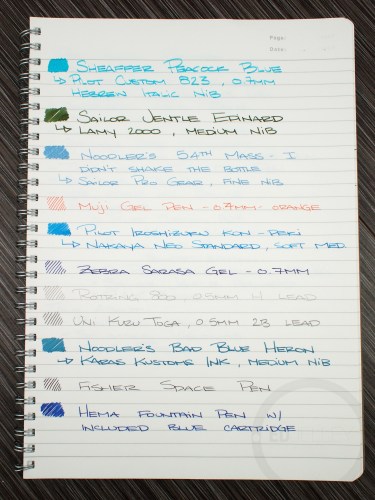 Page:
Date:
Sheaffer Peacock Blue
↳ Pilot Custom 823, 0.7mm
Hebrew Italic Nib
Sailor Jentle Epinard
↳ Lamy 2000, Medium Nib
Noodler's 54th Mass - I
didn't shake the bottle
↳ Sailor Pro Gear, Fine Nib
Muji Gel Pen - 0.7mm - Orange
Pilot Iroshizuku Kon-Peki
↳ Nakaya Neo Standard, Soft Med.
Zebra Sarasa Gel - 0.7mm
Rotring 800, 0.5mm Lead
Uni Kuru Toga, 0.5mm 2B Lead
Noodler's Bad Blue Heron
↳ Karas Kustoms Ink, Medium Nib
Fisher Space Pen
Hema Fountain Pen w/
included blue cartridge